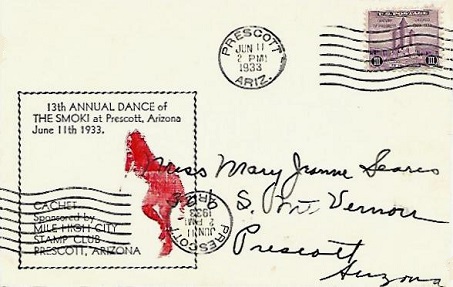 PRESCOTT
JUN 11
2 PM
1933
ARIZ.
U.S. POSTAGE
13th ANNUAL DANCE of
THE SMOKI at Prescott, Arizona
June 11th 1933.
CACHET
Sponsored by
MILE HIGH CITY
STAMP CLUB
PRESCOTT, ARIZONA
Miss Mary Jeanne Seares
S. Mt Vernon
Prescott
Arizona
PRESCOTT
JUN 11
2 PM
1933
ARIZ.